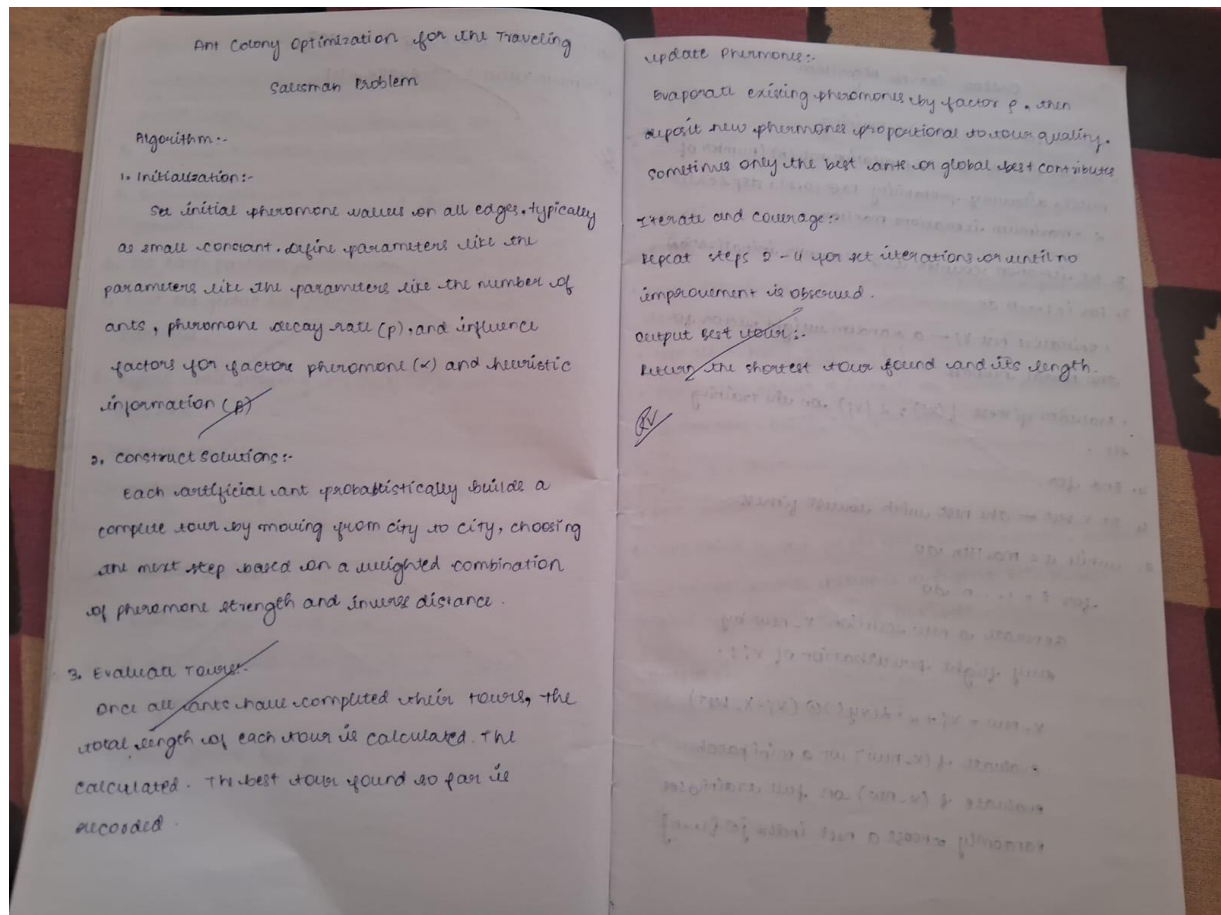 Ant Colony Optimization for the Traveling
Salesman Problem
Algorithm:-
1. Initialization:-
Set initial pheromone values on all edges, typically
as small constant. Define parameters like the
parameters like the parameters like the number of
ants, pheromone decay rate (p), and influence
factors for factors pheromone (α) and heuristic
information (β)
2. Construct Solutions:-
Each artificial ant probabtistically builds a
complete tour by moving from city to city, choosing
the next step based on a weighted combination
of pheromone strength and inverse distance.
3. Evaluate Tours:-
Once all ants have completed their tours, the
total length of each tour is calculated. The
calculated. The best tour found so far is
recorded.
Update Phermones:-
Evaporate existing pheromones by factor ρ. then
deposit new phermones proportional to tour quality.
Sometimes only the best ants or global best contributes
Iterate and coverage:-
Repeat steps 2-4 for set iterations or until no
improvement is observed.
Output Best tour:-
Return the shortest tour found and its length.